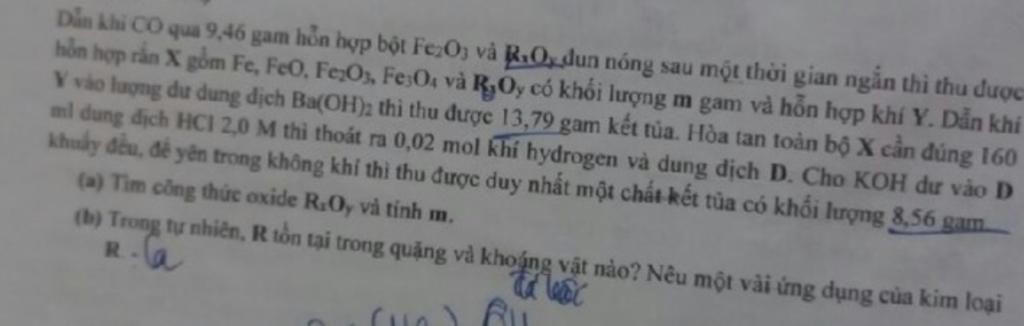 Dẫn khí CO qua 9,46 gam hỗn hợp bột Fe₂O₃ và RₓOᵧ đun nóng sau một thời gian ngắn thì thu được
hỗn hợp rắn X gồm Fe, FeO, Fe₂O₃, Fe₃O₄ và RₓOᵧ có khối lượng m gam và hỗn hợp khí Y. Dẫn khí
Y vào lượng dư dung dịch Ba(OH)₂ thì thu được 13,79 gam kết tủa. Hòa tan toàn bộ X cần đúng 160
ml dung dịch HCl 2,0 M thì thoát ra 0,02 mol khí hydrogen và dung dịch D. Cho KOH dư vào D
khuấy đều, để yên trong không khí thì thu được duy nhất một chất kết tủa có khối lượng 8,56 gam.
(a) Tìm công thức oxide RₓOᵧ và tính m.
(b) Trong tự nhiên, R tồn tại trong quặng và khoáng vật nào? Nêu một vài ứng dụng của kim loại
R.